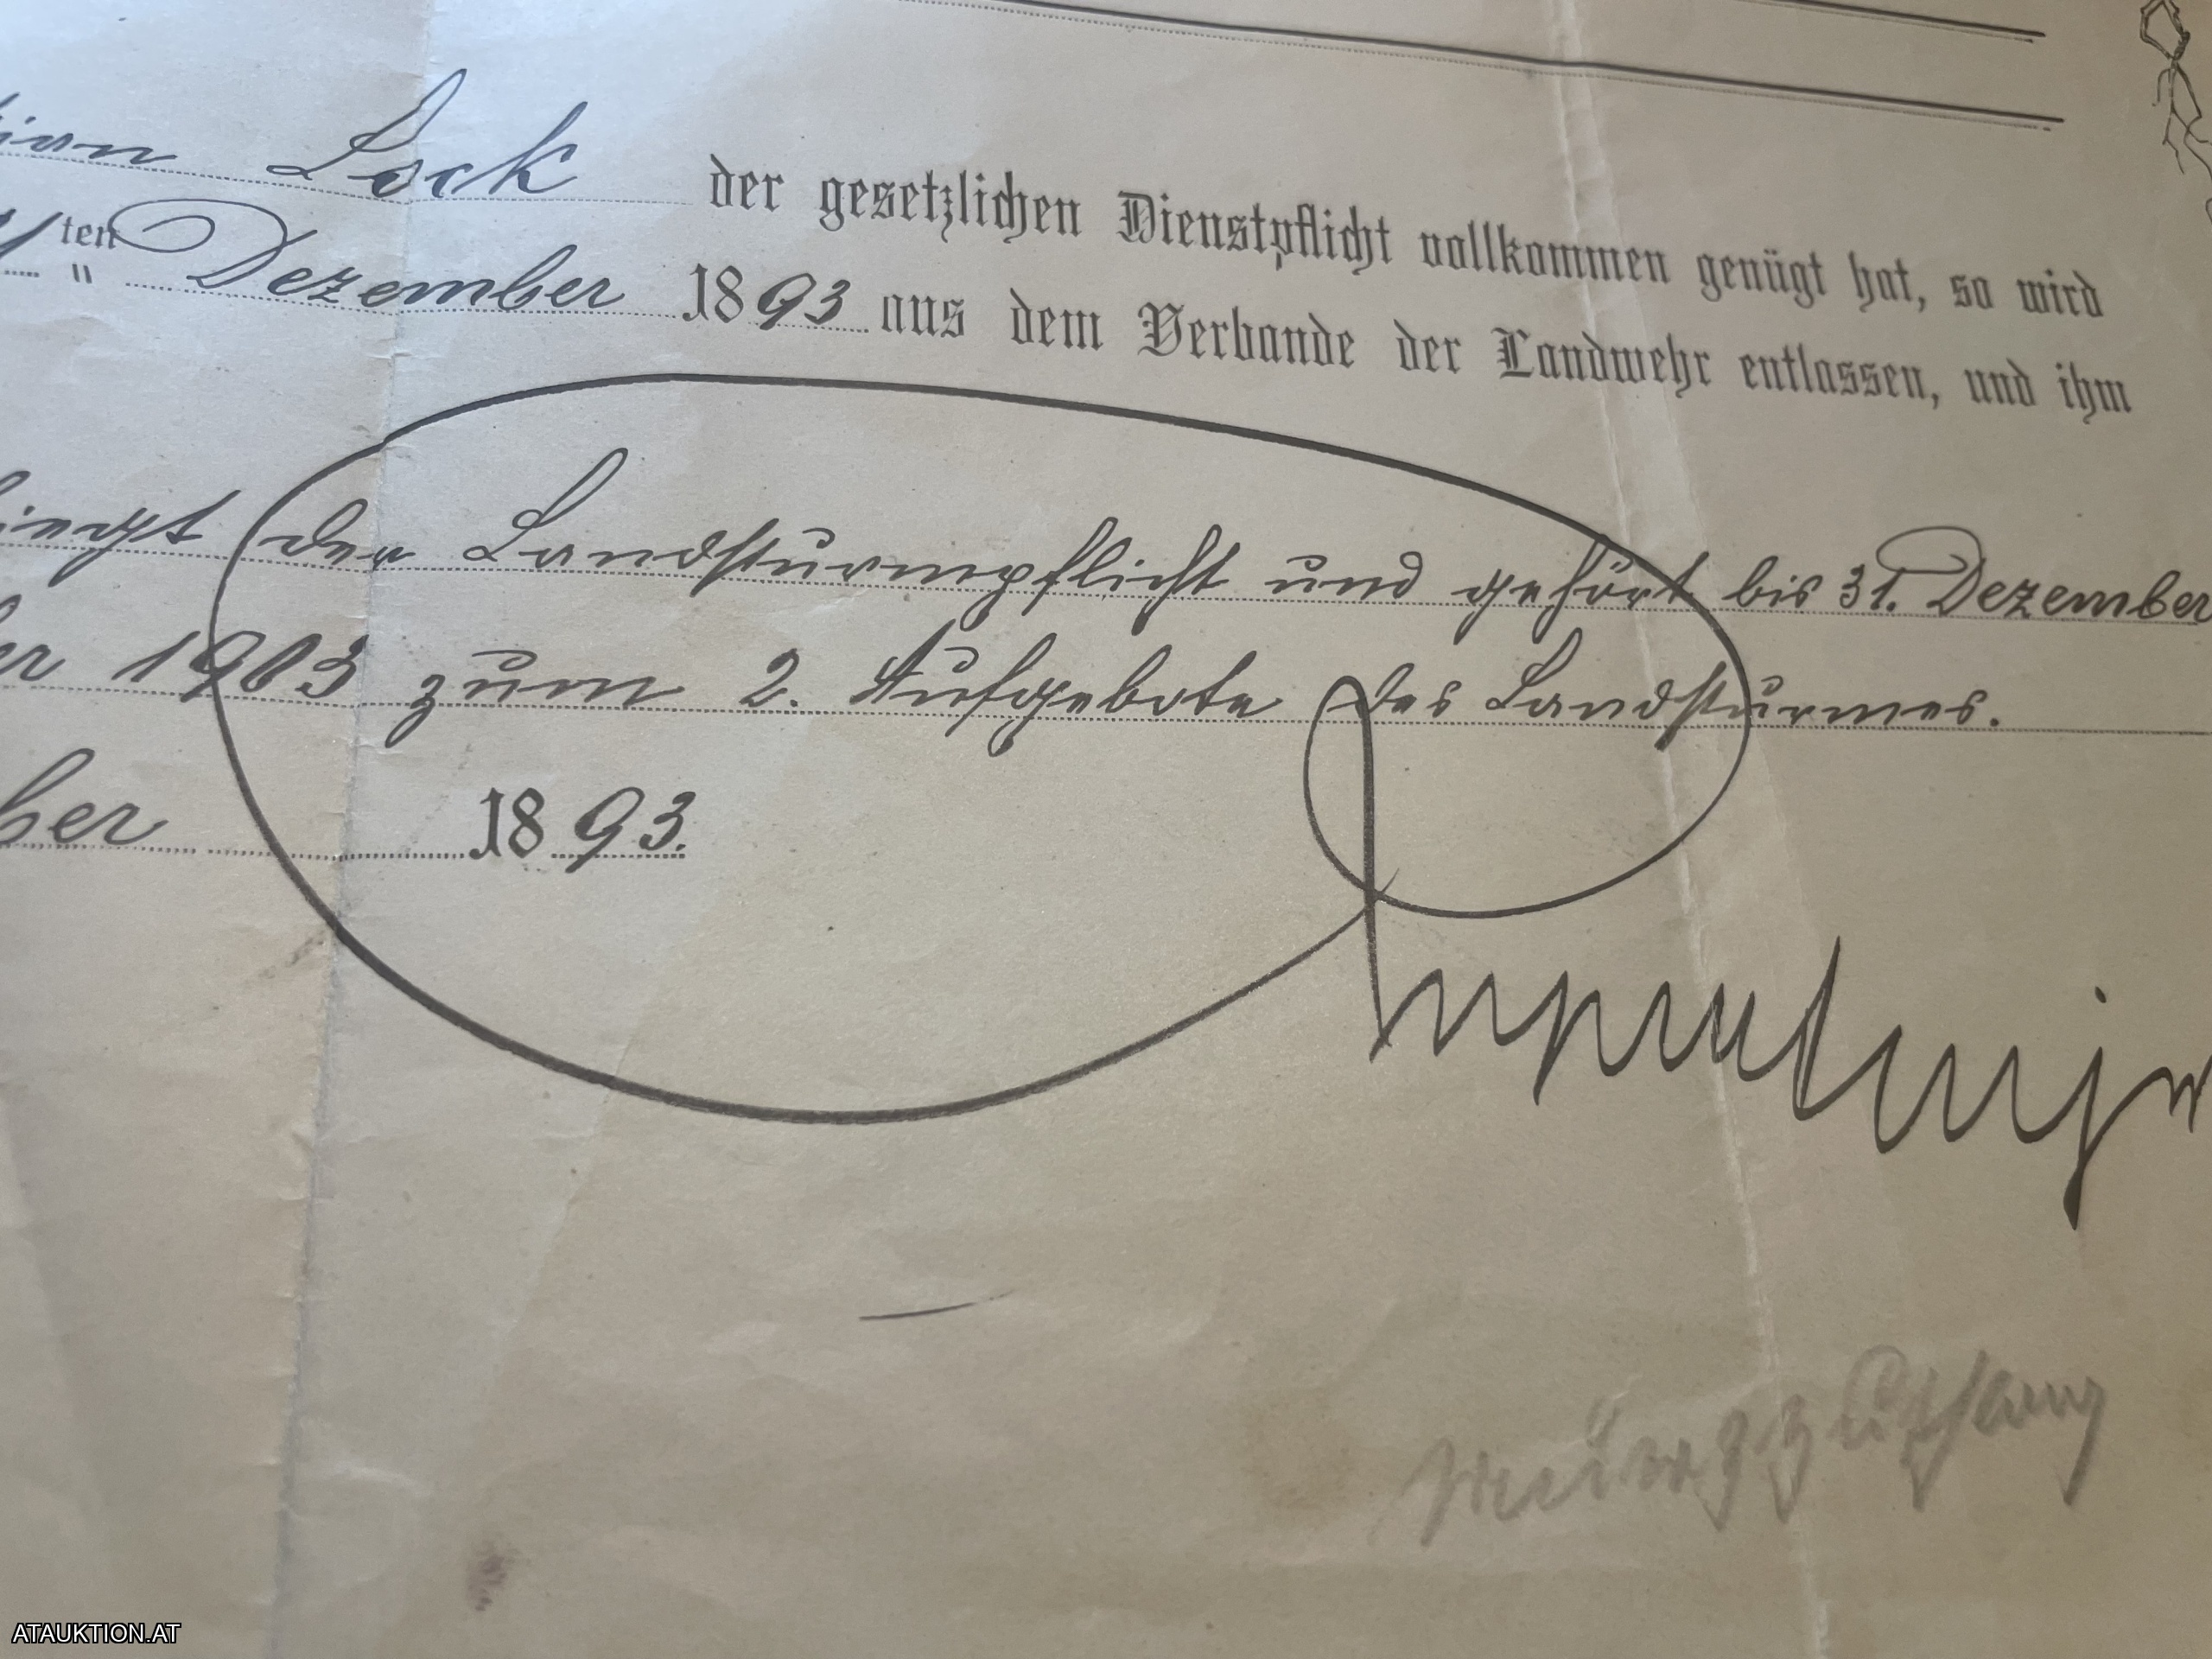 Lock der gesetzlichen Dienstpflicht vollkommen genügt hat, so wird
ten Dezember 1893 aus dem Verbande der Landwehr entlassen, und ihm
der Landsturmpflicht und gehört bis 31. Dezember
1903 zum 2. Aufgebote des Landsturmes.
ber 1893.
ATAUKTION.AT